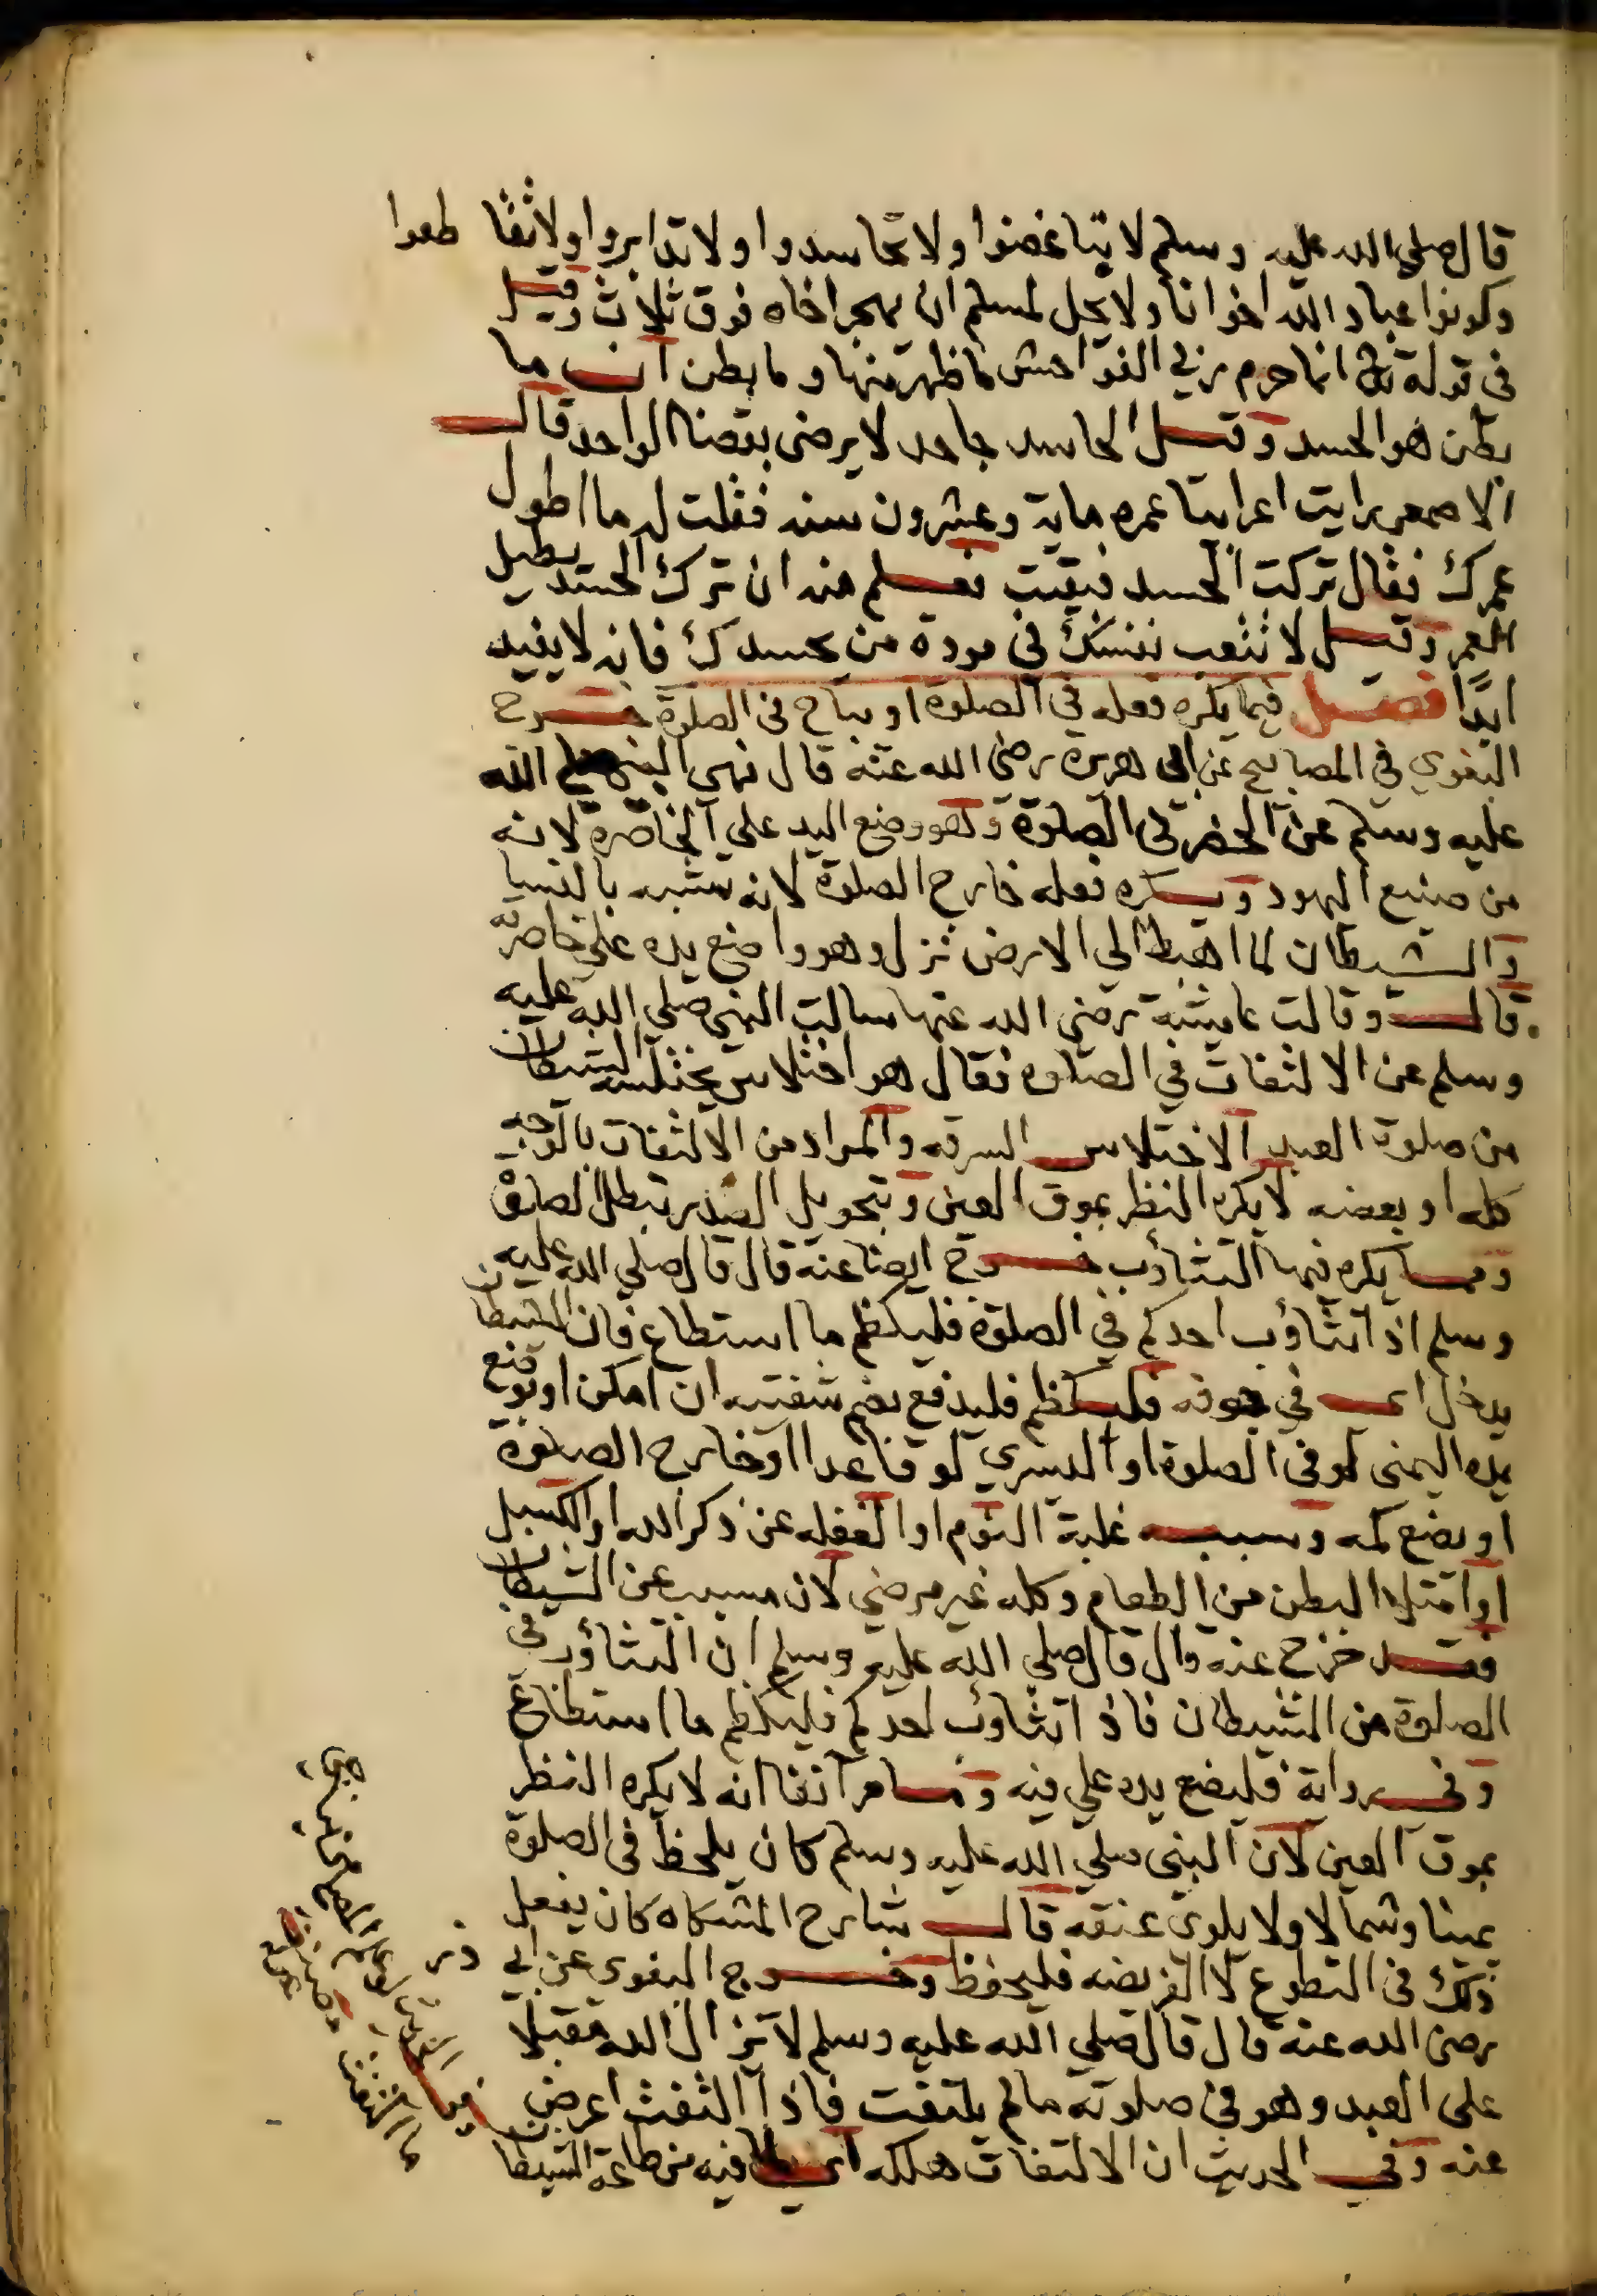 قال صلي الله عليه وسلم لا تباغضوا ولا تحاسدوا ولا تدابروا ولا تقاطعوا
وكونوا عباد الله اخوانا ولا يحل لمسلم ان يهجر اخاه فوق ثلاث وقيل
في قوله تعالى انما حرم ربي الفواحش ما ظهر منها وما بطن ان ما
بطن هو الحسد وقيل الحاسد جاحد لا يرضى بقضا الواحد قال
الاصمعي رايت اعرابيا عمره ماية وعشرون سنه فقلت له ما اطول
عمرك فقال تركت الحسد فبقيت فعلم منه ان ترك الحسد يطيل
العمر وقيل لا تتعب نفسك في مودة من يحسدك فانه لا يفيد
ابدا فصل فيما يكره فعله في الصلوة او يباح في الصلوة خرج
البغوي في المصابيح عن ابي هريرة رضي الله عنه قال نهى النبي صلي الله
عليه وسلم عن الخصر في الصلوة وهو وضع اليد على الخاصرة لانه
من صنيع اليهود ويكره فعله خارج الصلوة لانه تشبه بالنسا
والشيطان لما اهبط الي الارض نزل وهو واضع يده على خاصرته
قال وقالت عايشة رضي الله عنها سالت النبي صلي الله عليه
وسلم عن الالتفات في الصلوه فقال هو اختلاس يختلسه الشيطان
من صلوة العبد الاختلاس السرقه والمراد من الالتفات بالوجه
كله او بعضه لا يكره النظر بموق العين وبتحويل الصدر تبطل الصلوة
ومما يكره فيها التثاؤب خرج ايضا عنه قال قال صلي الله عليه
وسلم اذا تثاؤب احدكم في الصلوة فليكظم ما استطاع فان الشيطان
يدخل اي في جوفه فليكظم فليدفع بضم شفتيه ان امكن او بوضع
يده اليمنى لو في الصلوة او اليسري لو قاعدا او خارج الصلوة
او بضع كمه وسببه غلبة النوم او الغفله عن ذكر الله او الكسل
او امتلا البطن من الطعام وكله غير مرضي لان مسبب عن الشيطان
فقد خرج عنه قال قال صلي الله عليه وسلم ان التثاؤب في
الصلوة من الشيطان فاذا تثاوب احدكم فليكظم ما استطاع
وفي رواية فليضع يده علي فيه وما مر آنفا انه لا يكره النظر
بموق العين لان النبي صلي الله عليه وسلم كان يلحظ في الصلوة
يمينا وشمالا ولا يلوي عنقه قال شارح المشكاه كان يفعل
ذلك في التطوع لا الفريضه فليحفظ وخرج البغوي عن ابي ذر
رضي الله عنه قال قال صلي الله عليه وسلم لا يزال الله مقبلا
على العبد وهو في صلوته ما لم يلتفت فاذا التفت اعرض
عنه وفي الحديث ان الالتفات هلكه اي لما فيه من طاعة الشيطان
ما التفت